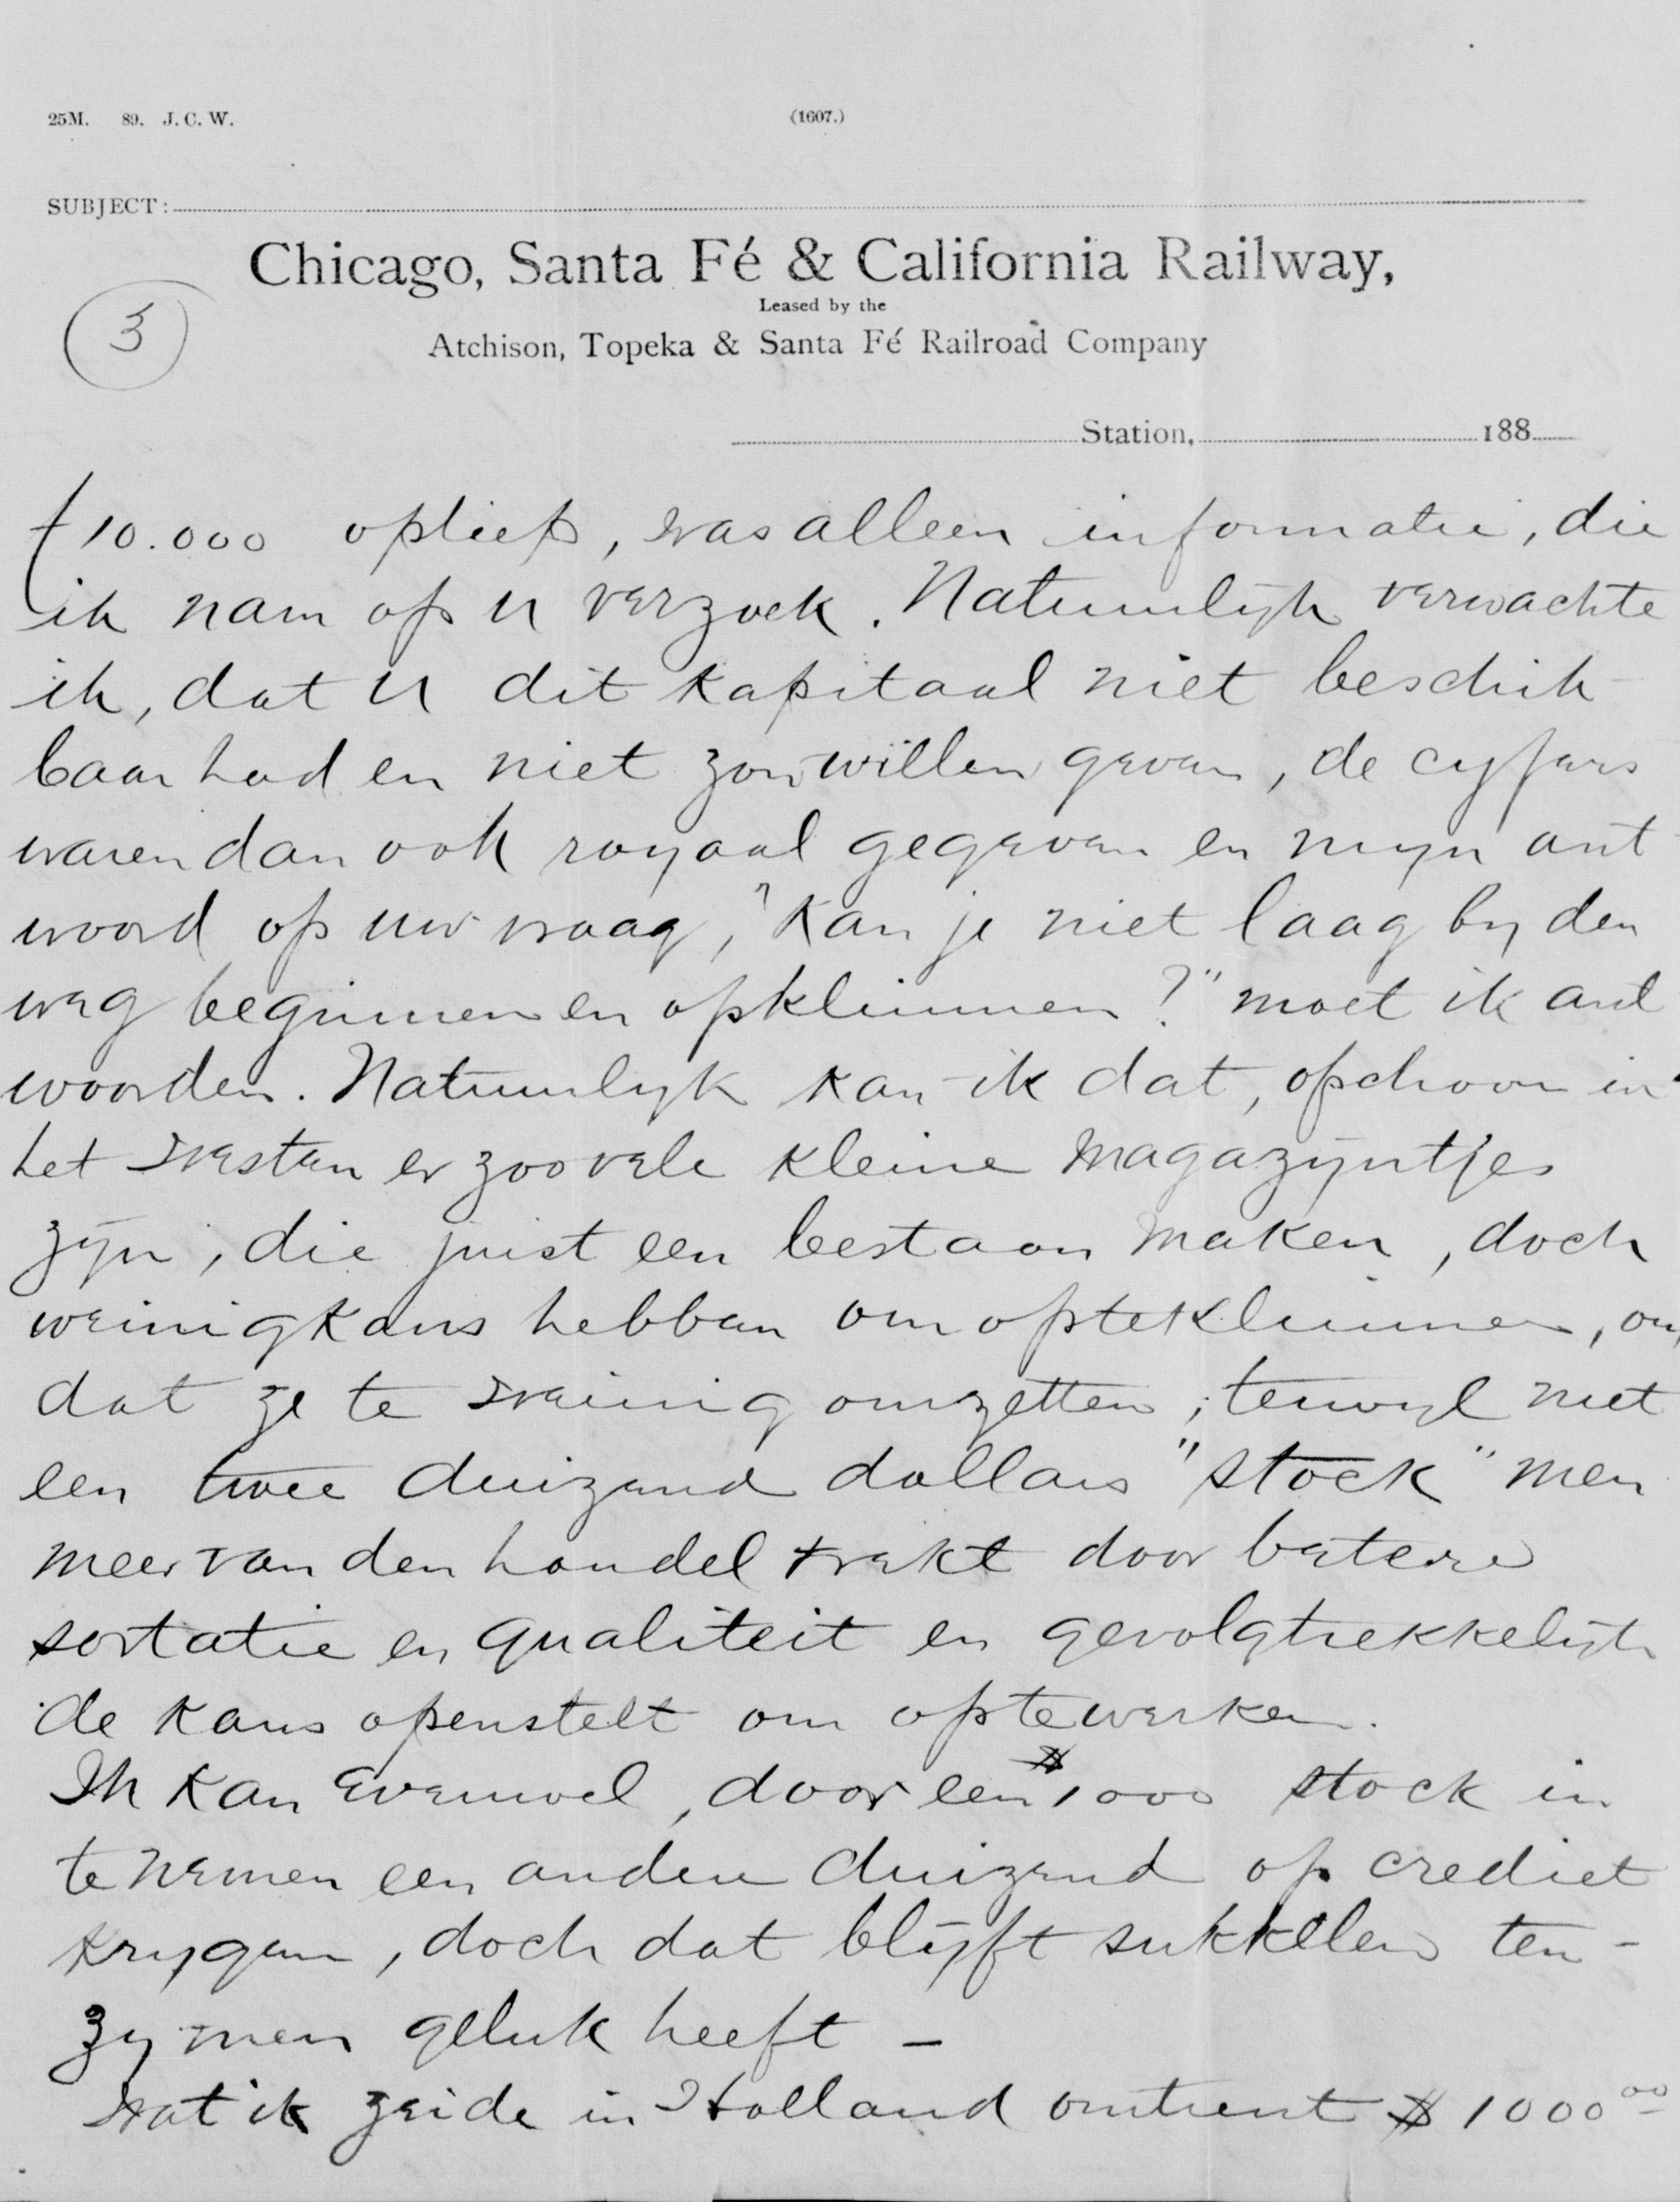 25M. 89. J. C. W. (1607.)
SUBJECT:
Chicago, Santa Fé & California Railway,
Leased by the
3
Atchison, Topeka & Santa Fé Railroad Company
Station, 188
f 10.000 opliep, was alleen informatie, die
ik nam op U verzoek. Natuurlijk verwachte
ik, dat U dit kapitaal niet beschik-
baar had en niet zou willen geven, de cyfers
waren dan ook royaal gegeven en myn ant-
woord op uw vraag, "Kan je niet laag by den
weg beginnen en opklimmen?" moet ik ant
woorden. Natuurlyk kan ik dat, ofschoon in
het Westen er zoovele kleine magazijntjes
zijn, die juist een bestaan maken, doch
weinig kans hebben om opteklimmen, om
dat ze te weinig omzetten, terwyl met
een twee duizend dollars "stock" men
meer van den handel trekt door betere
sortatie en qualiteit en gevolgtrekkelijk
de kans openstelt om optewerken.
Ik kan evenwel, door een $1000 stock in
te nemen een andere duizend op crediet
krygen, doch dat blijft sukkelen ten-
zy men geluk heeft —
Wat ik zeide in Holland omtrent $ 1000 00